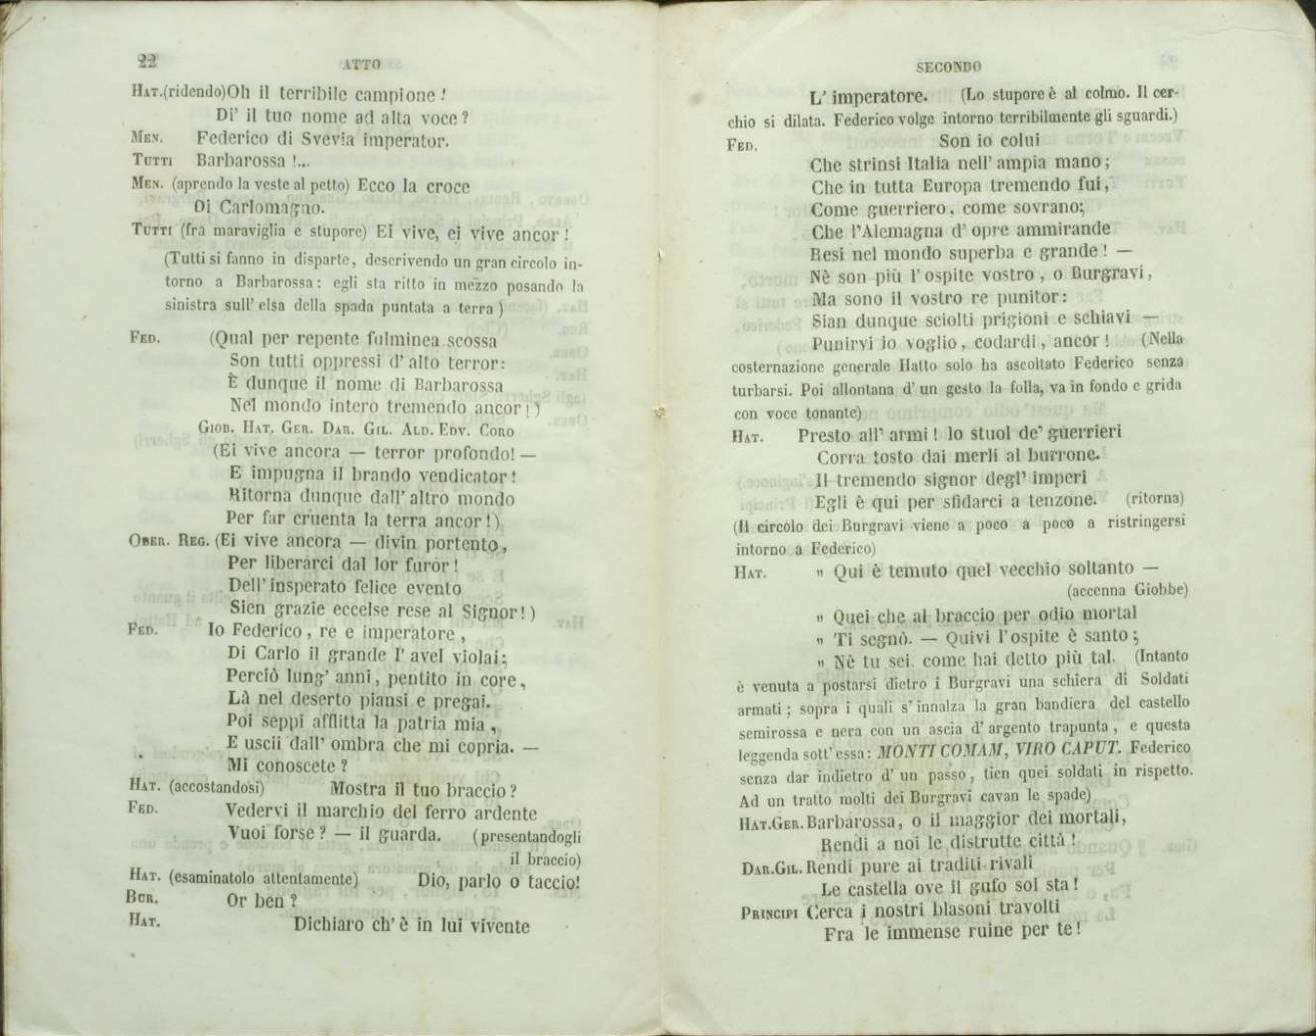 22
ATTO
HAT. (ridendo) Oh il terribile campione!
Di' il tuo nome ad alta voce?
MEN. Federico di Svevia imperator.
TUTTI Barbarossa!...
MEN. (aprendo la veste al petto) Ecco la croce
Di Carlomagno.
TUTTI (fra maraviglia e stupore) Ei vive, ei vive ancor!
(Tutti si fanno in disparte, descrivendo un gran circolo in-
torno a Barbarossa: egli sta ritto in mezzo posando la
sinistra sull' elsa della spada puntata a terra)
FED. (Qual per repente fulminea scossa
Son tutti oppressi d' alto terror:
È dunque il nome di Barbarossa
Nel mondo intero tremendo ancor!)
GIOB. HAT. GER. DAR. GIL. ALD. EDV. CORO
(Ei vive ancora — terror profondo! —
E impugna il brando vendicator!
Ritorna dunque dall' altro mondo
Per far cruenta la terra ancor!)
OBER. REG. (Ei vive ancora — divin portento,
Per liberarci dal lor furor!
Dell' insperato felice evento
Sien grazie eccelse rese al Signor!)
FED. Io Federico, re e imperatore,
Di Carlo il grande l' avel violai;
Perciò lung' anni, pentito in core,
Là nel deserto piansi e pregai.
Poi seppi afflitta la patria mia,
E uscii dall' ombra che mi copria. —
Mi conoscete?
HAT. (accostandosi) Mostra il tuo braccio?
FED. Vedervi il marchio del ferro ardente
Vuoi forse? — il guarda. (presentandogli
il braccio)
HAT. (esaminatolo attentamente) Dio, parlo o taccio!
BUR. Or ben?
HAT. Dichiaro ch' è in lui vivente
SECONDO
L' imperatore. (Lo stupore è al colmo. Il cer-
chio si dilata. Federico volge intorno terribilmente gli sguardi.)
FED. Son io colui
Che strinsi Italia nell' ampia mano;
Che in tutta Europa tremendo fui,
Come guerriero, come sovrano;
Che l'Alemagna d' opre ammirande
Resi nel mondo superba e grande! —
Nè son più l' ospite vostro, o Burgravi,
Ma sono il vostro re punitor:
Sian dunque sciolti prigioni e schiavi —
Punirvi io voglio, codardi, ancor! (Nella
costernazione generale Hatto solo ha ascoltato Federico senza
turbarsi. Poi allontana d' un gesto la folla, va in fondo e grida
con voce tonante)
HAT. Presto all' armi! lo stuol de' guerrieri
Corra tosto dai merli al burrone.
Il tremendo signor degl' imperi
Egli è qui per sfidarci a tenzone. (ritorna)
(Il circolo dei Burgravi viene a poco a poco a ristringersi
intorno a Federico)
HAT. " Qui è temuto quel vecchio soltanto —
(accenna Giobbe)
" Quei che al braccio per odio mortal
" Ti segnò. — Quivi l' ospite è santo;
" Nè tu sei come hai detto più tal. (Intanto
è venuta a postarsi dietro i Burgravi una schiera di Soldati
armati; sopra i quali s' innalza la gran bandiera del castello
semirossa e nera con un ascia d' argento trapunta, e questa
leggenda sott' essa: MONTI COMAM, VIRO CAPUT. Federico
senza dar indietro d' un passo, tien quei soldati in rispetto.
Ad un tratto molti dei Burgravi cavan le spade)
HAT. GER. Barbarossa, o il maggior dei mortali,
Rendi a noi le distrutte città!
DAR. GIL. Rendi pure ai traditi rivali
Le castella ove il gufo sol sta!
PRINCIPI Cerca i nostri blasoni travolti
Fra le immense ruine per te!